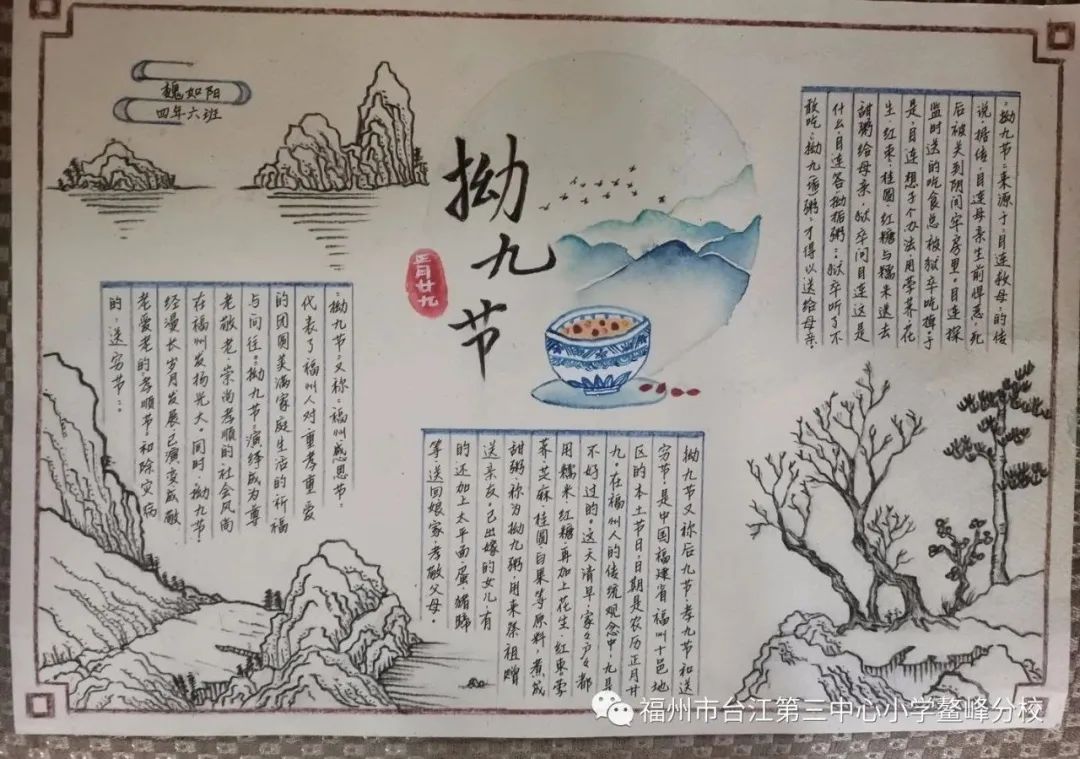 魏如阳
四年六班
拗九节
正月廿九
“拗九节”来源于“目连救母”的传
说。据传,目连母亲生前悍恶,死
后被关到阴间牢房里。目连探
监时送的吃食总被狱卒吃掉。于
是,目连想了个办法,用荸荠、花
生、红枣、桂圆、红糖与糯米送去
甜粥给母亲,狱卒问目连这是
什么,目连答“拗垢粥”,狱卒听了不
敢吃,“拗九粥”才得以送给母亲。
“拗九节”又称“福州感恩节”,
代表了福州人对重孝重爱
的团圆美满家庭生活的祈福
与向往。“拗九节”演绎成为尊
老敬老、崇尚孝顺的社会风尚
在福州发扬光大。同时,拗九节
经漫长岁月发展已演变成敬
老爱老的“孝顺节”和除灾病
的“送穷节”。
拗九节又称后九节、孝九节和送
穷节,是中国福建省福州十邑地
区的本土节日,日期是农历正月廿
九。在福州人的传统观念中,九是
不好过的。这天清早,家々户々都
用糯米、红糖,再加上花生、红枣、荸
荠、芝麻、桂圆、白果等原料,煮成
甜粥,称为拗九粥,用来祭祖赠
送亲友。已出嫁的女儿,有
的还加上太平面、蛋、猪蹄
等送回娘家,孝敬父母。
福州市台江第三中心小学鳌峰分校